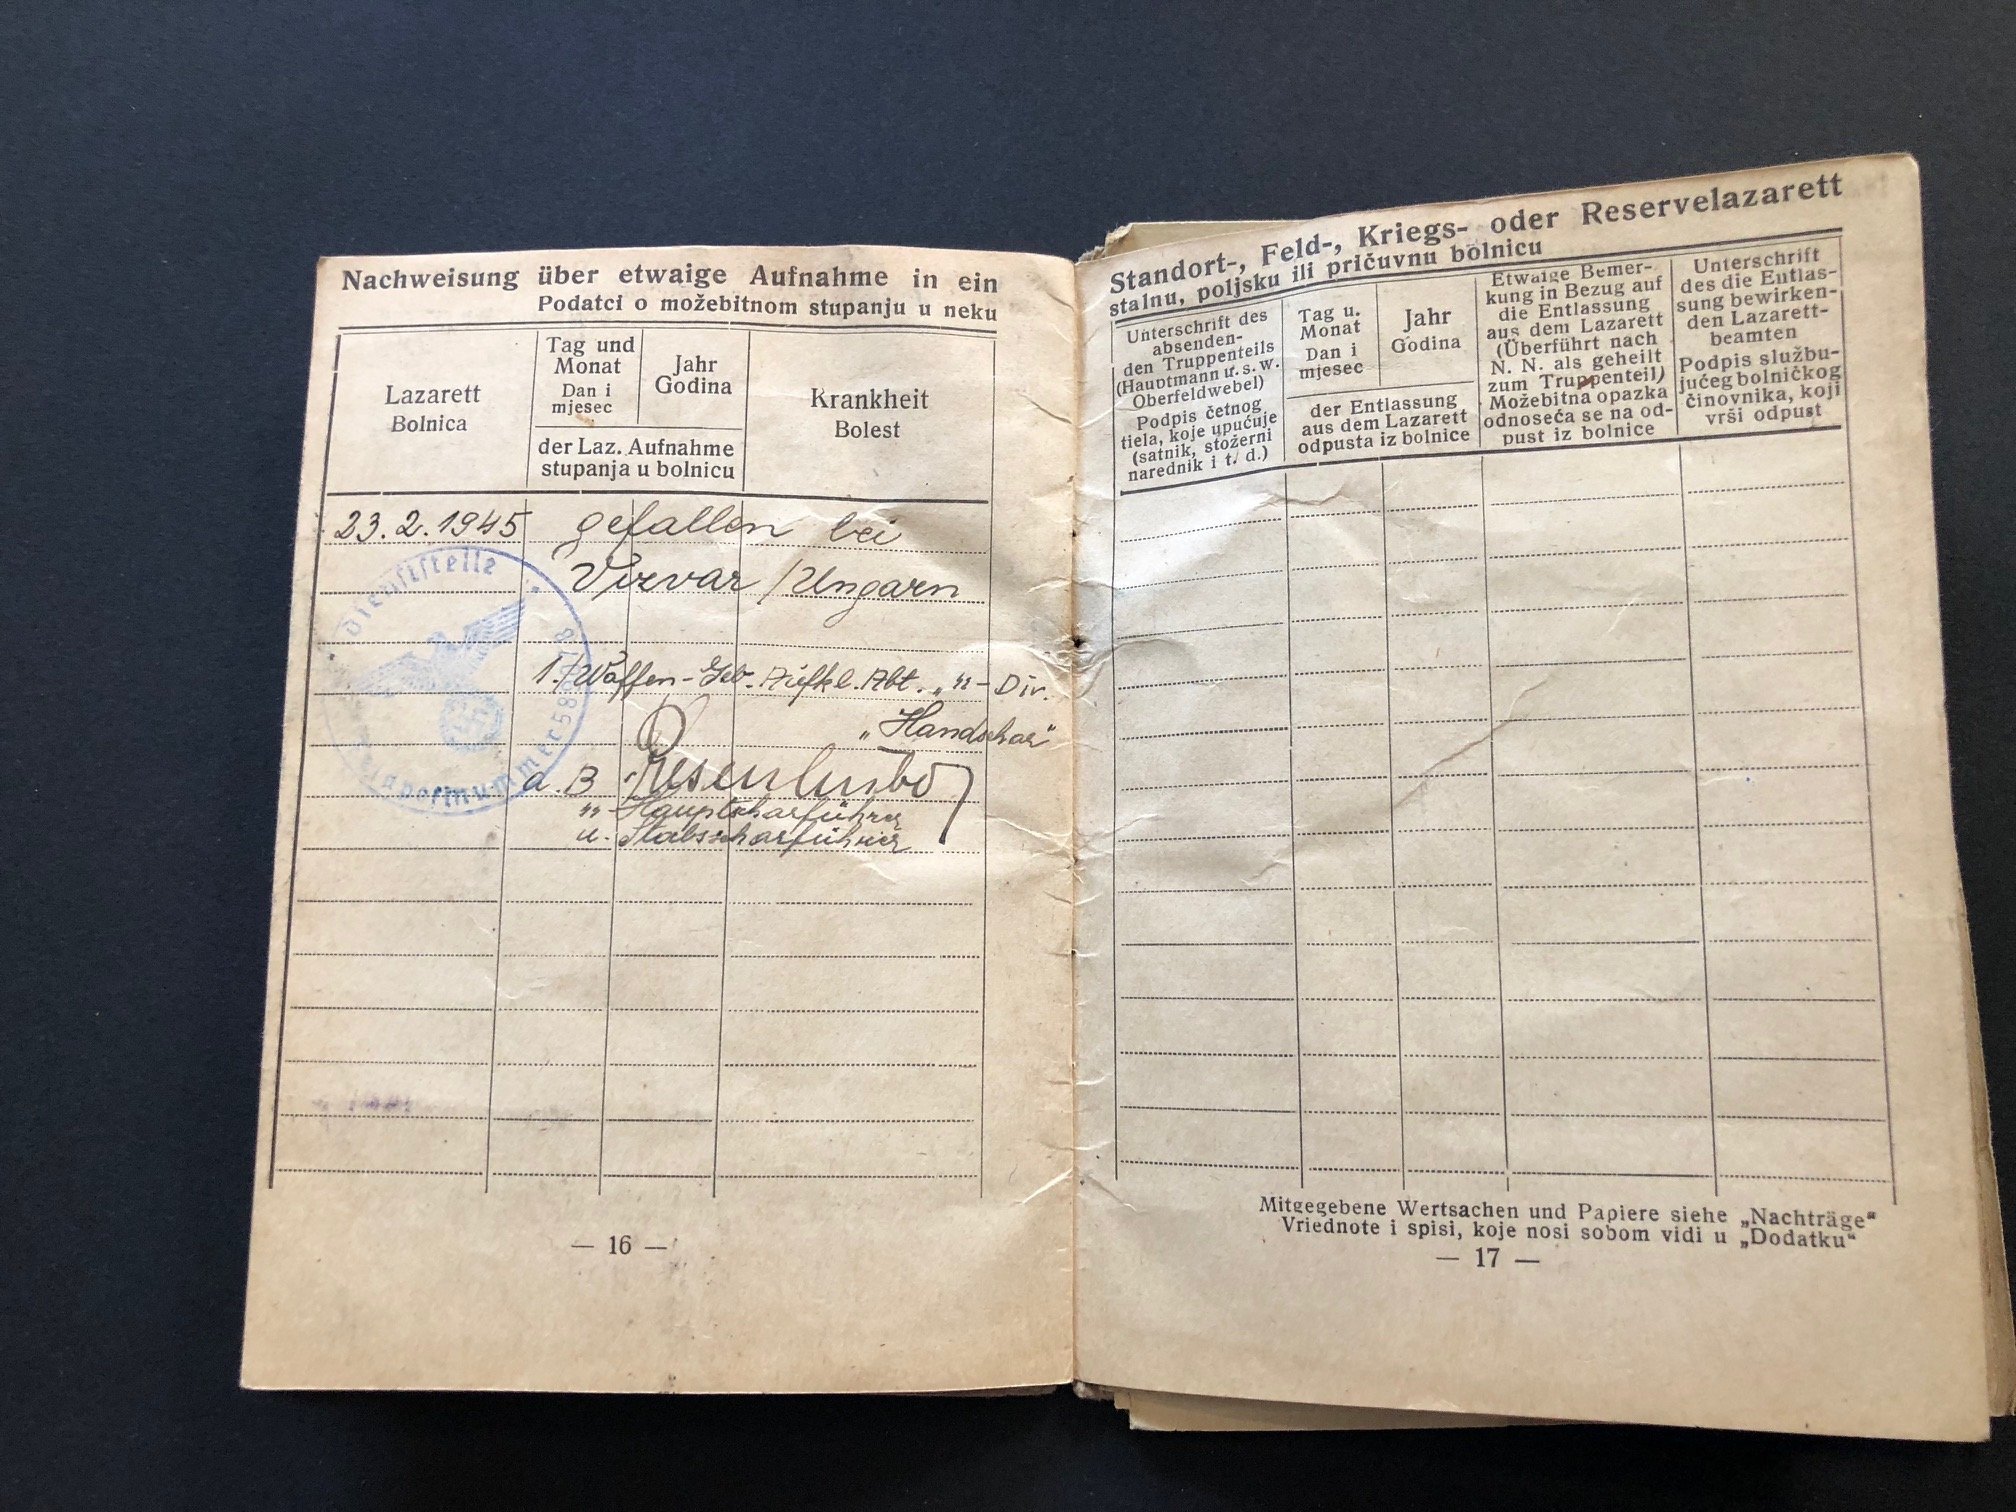 Nachweisung über etwaige Aufnahme in ein
Podatci o možebitnom stupanju u neku
Lazarett
Bolnica
Tag und
Monat
Dan i
mjesec
Jahr
Godina
der Laz. Aufnahme
stupanja u bolnicu
Krankheit
Bolest
23.2.1945 gefallen bei
Vizvar / Ungarn
1./Waffen-Geb. Aufkl. Abt. „SS-Div.
„Handschar"
a. B
SS-Hauptscharführer
u. Stabsscharführer
Dienststelle
Feldpostnummer
— 16 —
Standort-, Feld-, Kriegs- oder Reservelazarett
stalnu, poljsku ili pričuvnu bolnicu
Unterschrift des
absenden-
den Truppenteils
(Hauptmann u. s. w.
Oberfeldwebel)
Podpis četnog
tiela, koje upućuje
(satnik, stožerni
narednik i t. d.)
Tag u.
Monat
Dan i
mjesec
Jahr
Godina
der Entlassung
aus dem Lazarett
odpusta iz bolnice
Etwaige Bemer-
kung in Bezug auf
die Entlassung
aus dem Lazarett
(Überführt nach
N. N. als geheilt
zum Truppenteil)
Možebitna opazka
odnoseća se na od-
pust iz bolnice
Unterschrift
des die Entlas-
sung bewirken-
den Lazarett-
beamten
Podpis službu-
jućeg bolničkog
činovnika, koji
vrši odpust
Mitgegebene Wertsachen und Papiere siehe „Nachträge“
Vriednote i spisi, koje nosi sobom vidi u „Dodatku“
— 17 —